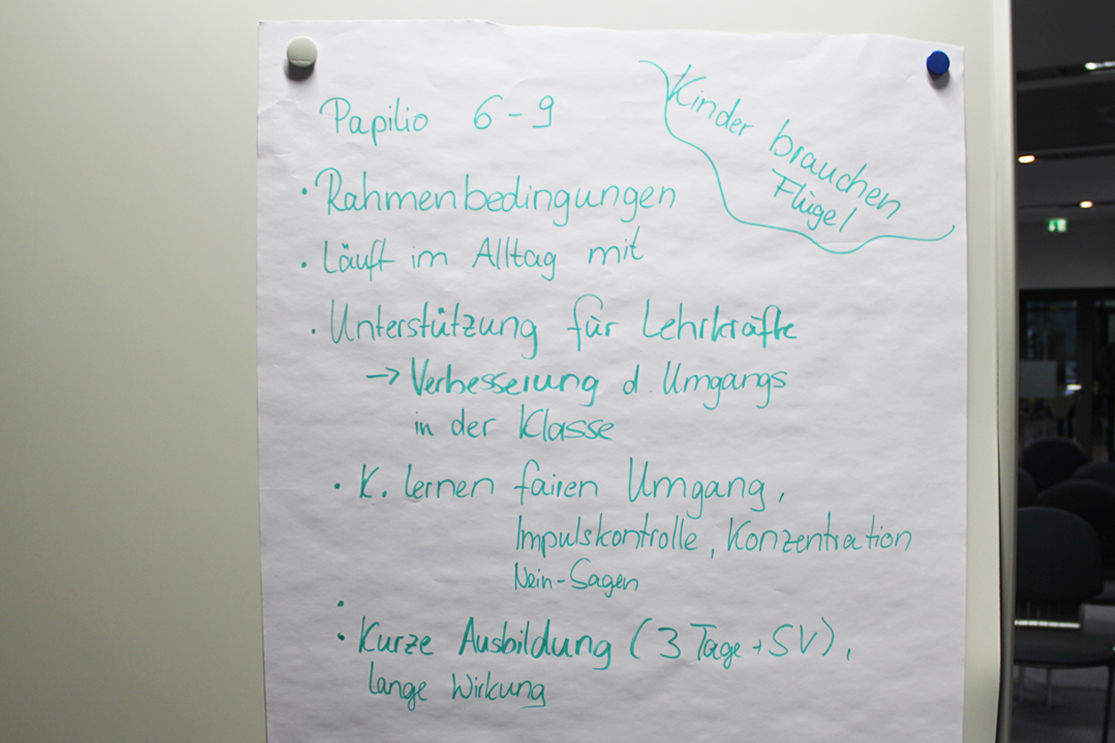 Papilio 6-9
Kinder brauchen
Flügel
· Rahmenbedingungen
· Läuft im Alltag mit
· Unterstützung für Lehrkräfte
→ Verbesserung d. Umgangs
in der Klasse
· K. lernen fairen Umgang,
Impulskontrolle, Konzentration
Nein-Sagen
·
· Kurze Ausbildung (3 Tage + SV),
lange Wirkung